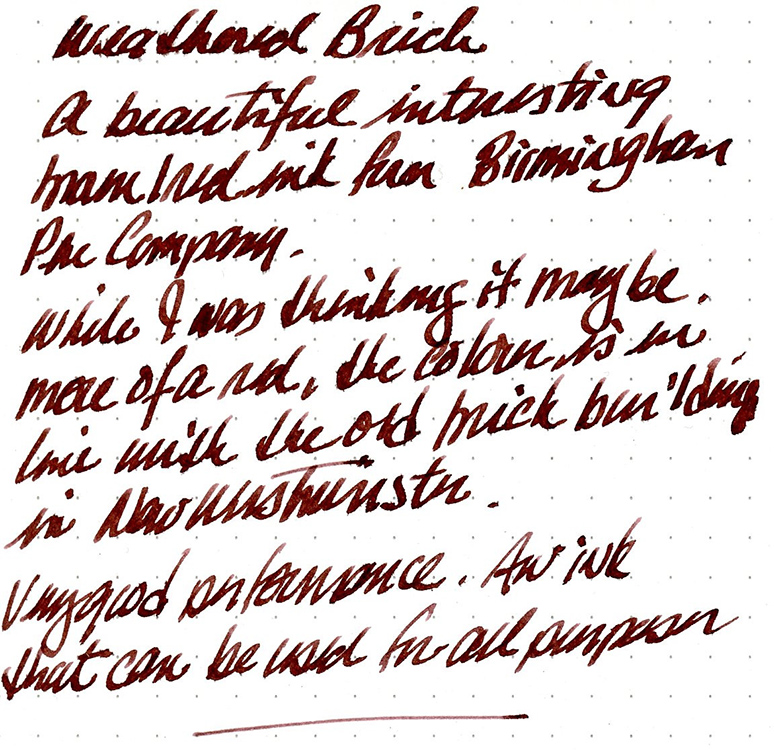 Weathered Brick
A beautiful interesting
brown/red ink from Birmingham
Pen Company.
While I was thinking it may be
more of a red, the colour is in
line with the old brick building
in New Westminster.
Very good performance. An ink
that can be used for all purposes